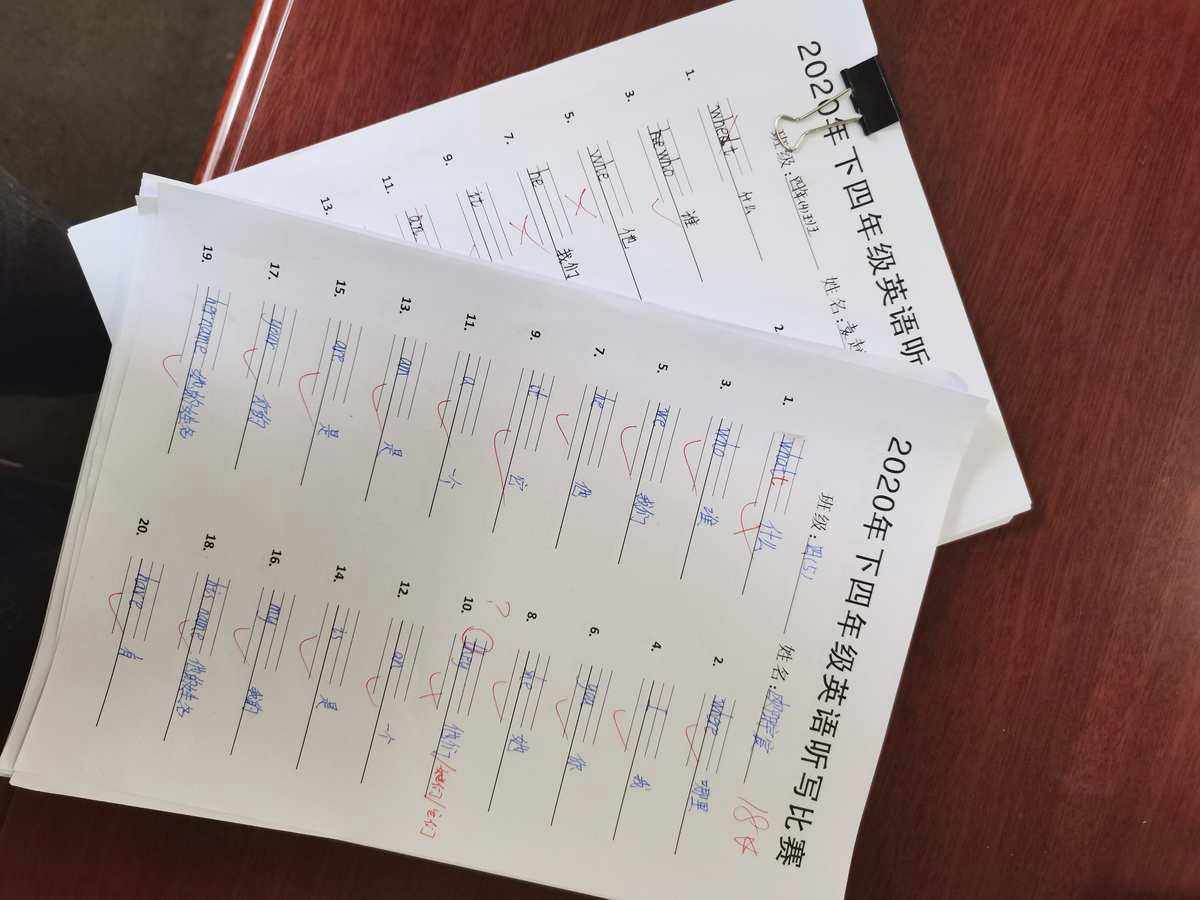 2020年下四年级英语听
班级: 姓名:
1. wheat 什么
2.
3. he who 谁
5. whe 他
7. he 我们
9. it
11.
13.
2020年下四年级英语听写比赛
班级:四(5) 姓名:
18
1. what 什么 2. where 哪里
3. who 谁 4. I 我
5. we 我们 6. you 你
7. he 他 8. she 她
9. it 它 10. they 他们/她们/它们
?
11. a 一个 12. an 一个
13. am 是 14. is 是
15. are 是 16. my 我的
17. your 你的 18. his name 他的姓名
19. her name 她的姓名 20. have 有